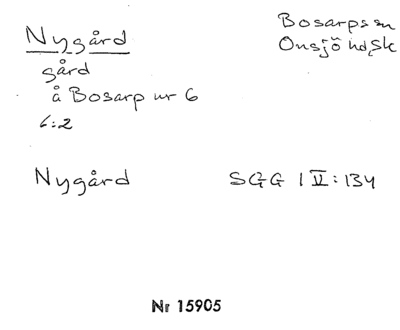 Nygård
Bosarps sn
Onsjö hd, Sk
gård
å Bosarp nr 6
6:2
Nygård
SGG IV:134
Nr 15905